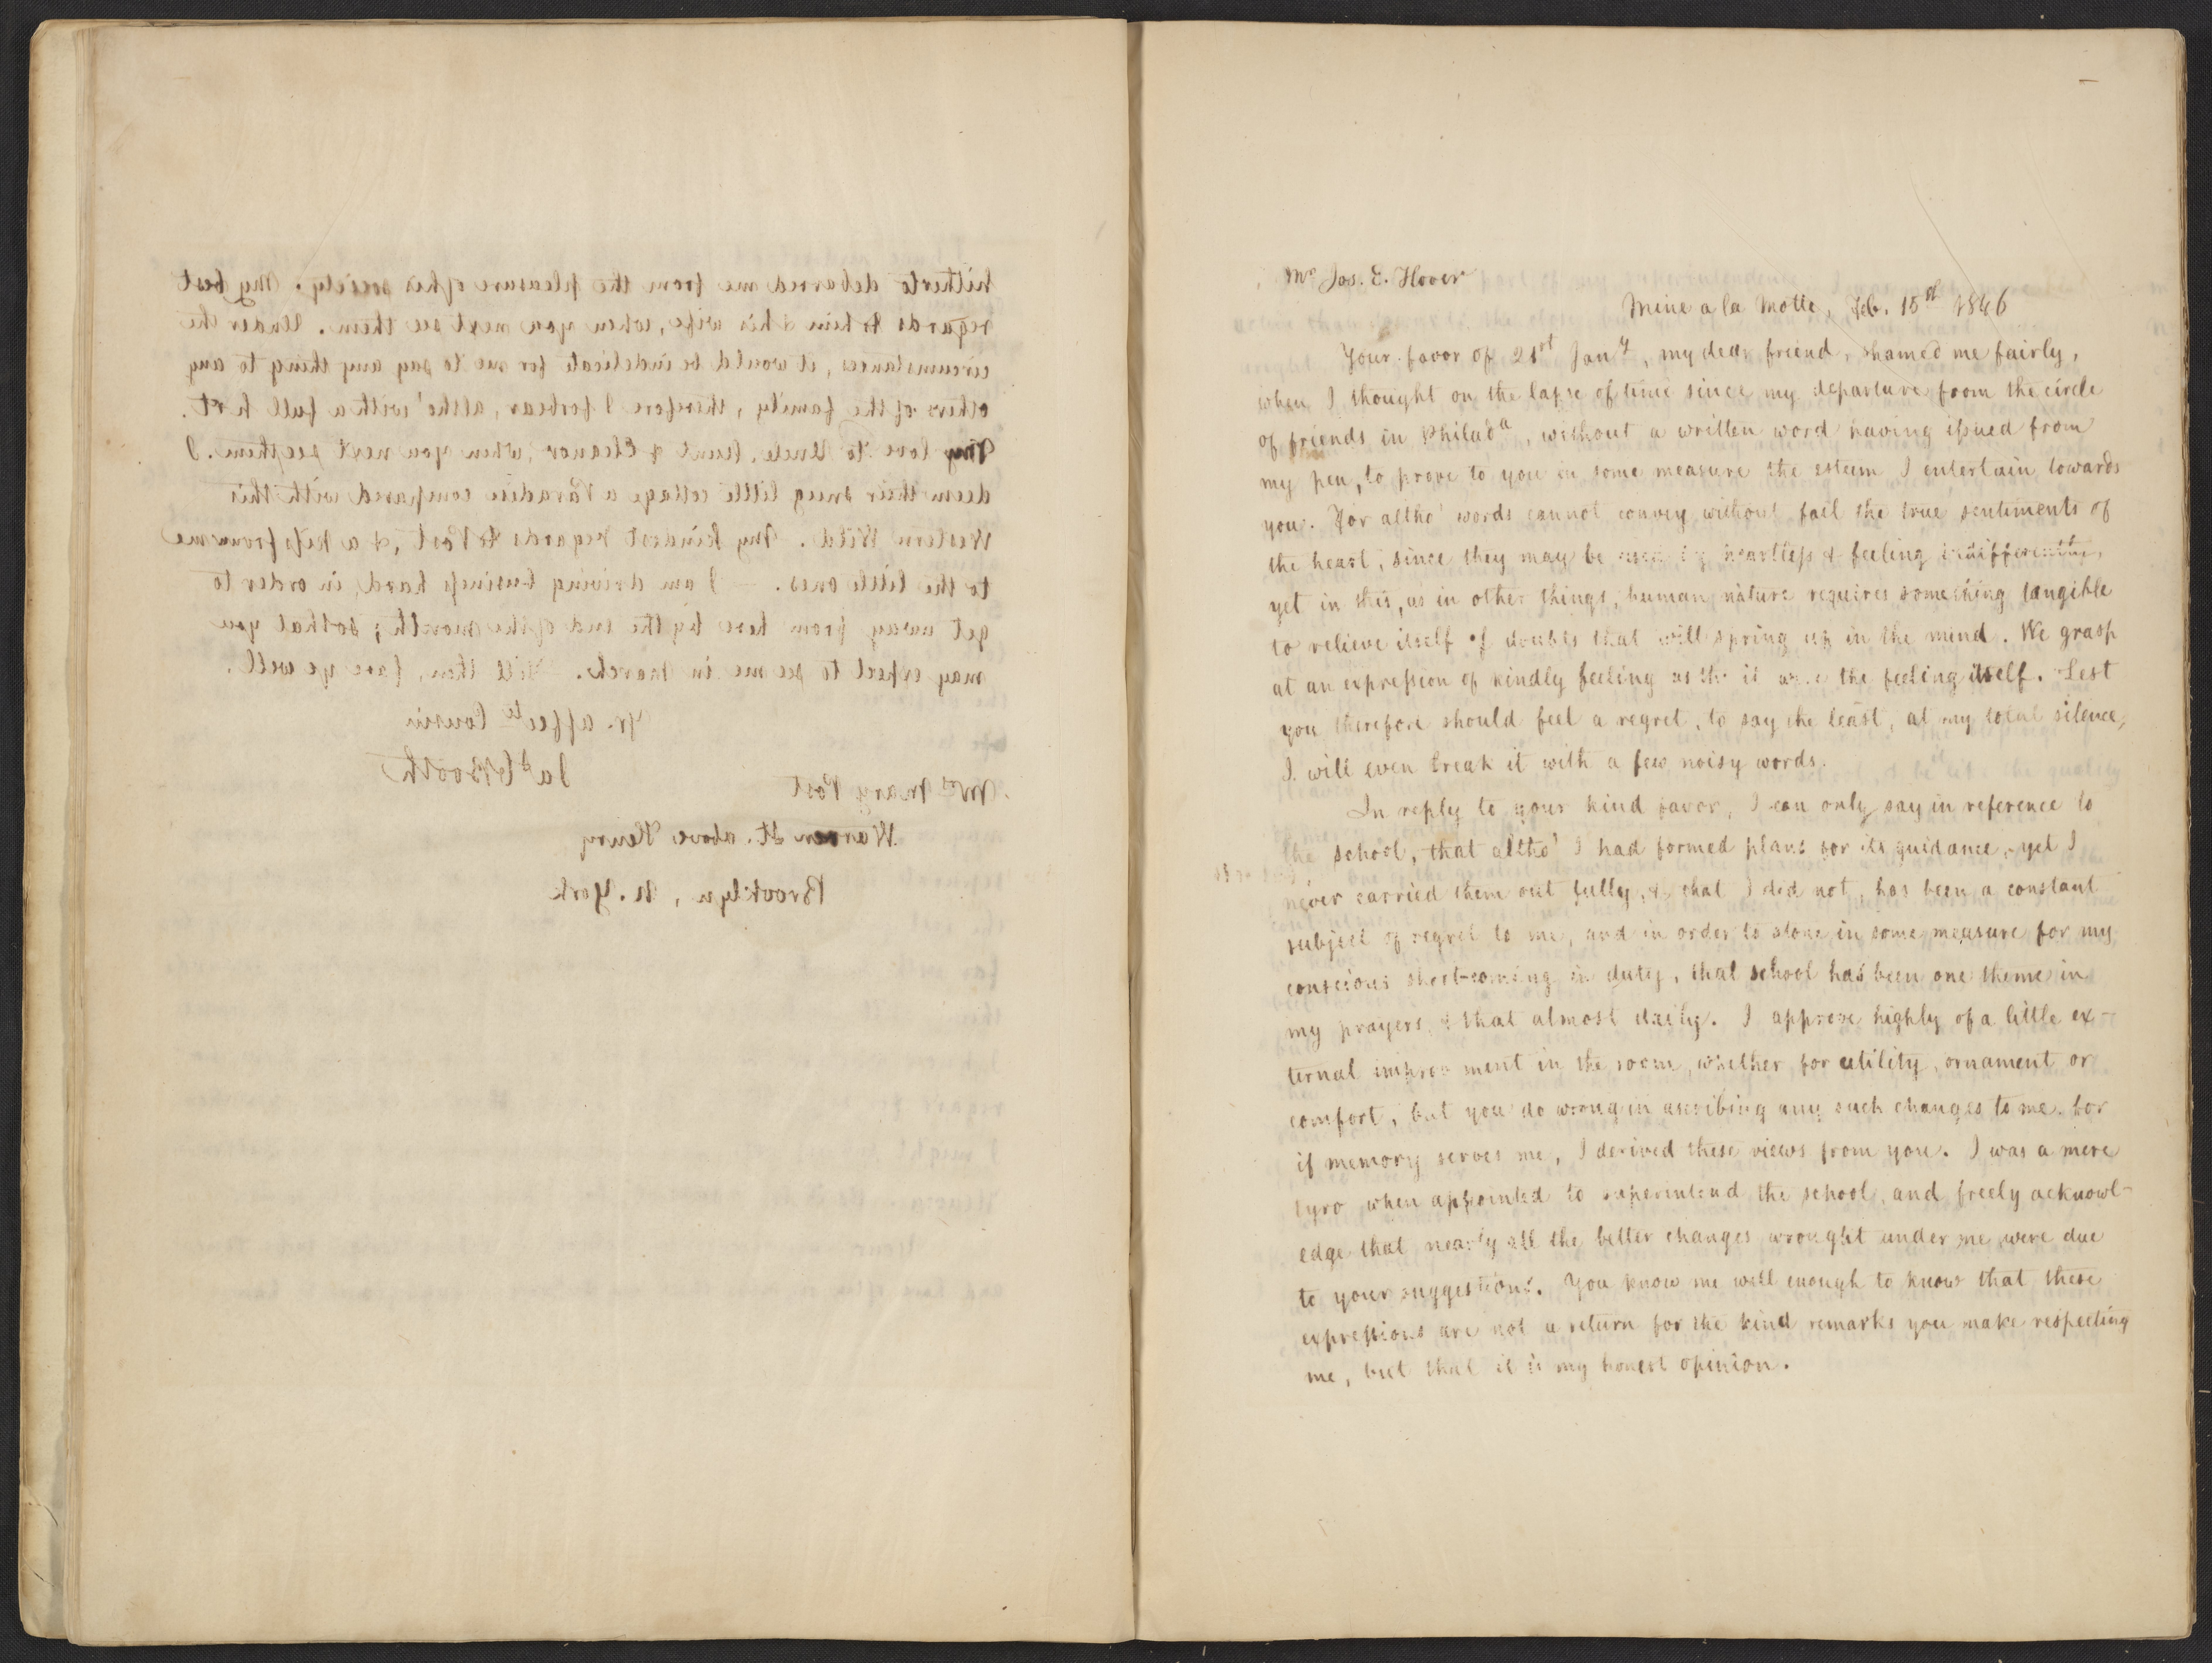 hitherto debarred me from the pleasure of his society. My best
regards to him & his wife, when you next see them. Under the
circumstances, it would be indelicate for me to say any thing to any
others of the family, therefore I forbear, altho' with a full h'rt.
My love to Uncle, Aunt & Eleanor, when you next see them. I
deem their snug little cottage a Paradise compared with this
Western Wild. My kindest regards to Post, &, a kiss from me
to the little ones. — I am driving business hard, in order to
get away from here by the end of the month; so that you
may expect to see me in March. Till then, fare ye well.
Yr. affecte Cousin
Jas C Booth
Mrs Mary Post
Warren St. above Henry
Brooklyn, N. York
Mr Jos. E. Hover
Mine a la Motte, Feb. 15th 1846
Your favor of 21st Jany, my dear friend, shamed me fairly,
when I thought on the lapse of time since my departure from the circle
of friends in Philada, without a written word having issued from
my pen, to prove to you in some measure the esteem I entertain towards
you. For altho' words cannot convey without fail the true sentiments of
the heart, since they may be heartless & feeling
yet in this, as in other things, human nature requires something tangible
to relieve itself of doubts that will spring up in the mind. We grasp
at an expression of kindly feeling as tho it were the feeling itself. Lest
you therefore should feel a regret, to say the least, at my total silence,
I will even break it with a few noisy words.
In reply to your kind favor, I can only say in reference to
the school, that altho' I had formed plans for its guidance, yet I
never carried them out fully, & that I did not, has been a constant
subject of regret to me, and in order to atone in some measure for my
conscious short-coming in duty, that school has been one theme in
my prayers, & that almost daily. I approve highly of a little ex-
ternal improvement in the room, whether for utility, ornament or
comfort, but you do wrong in ascribing any such changes to me. For
if memory serves me, I derived these views from you. I was a mere
tyro when appointed to superintend the school, and freely acknowl-
edge that nearly all the better changes wrought under me were due
to your suggestions. You know me well enough to know that these
expressions are not a return for the kind remarks you make respecting
me, but that it is my honest opinion.